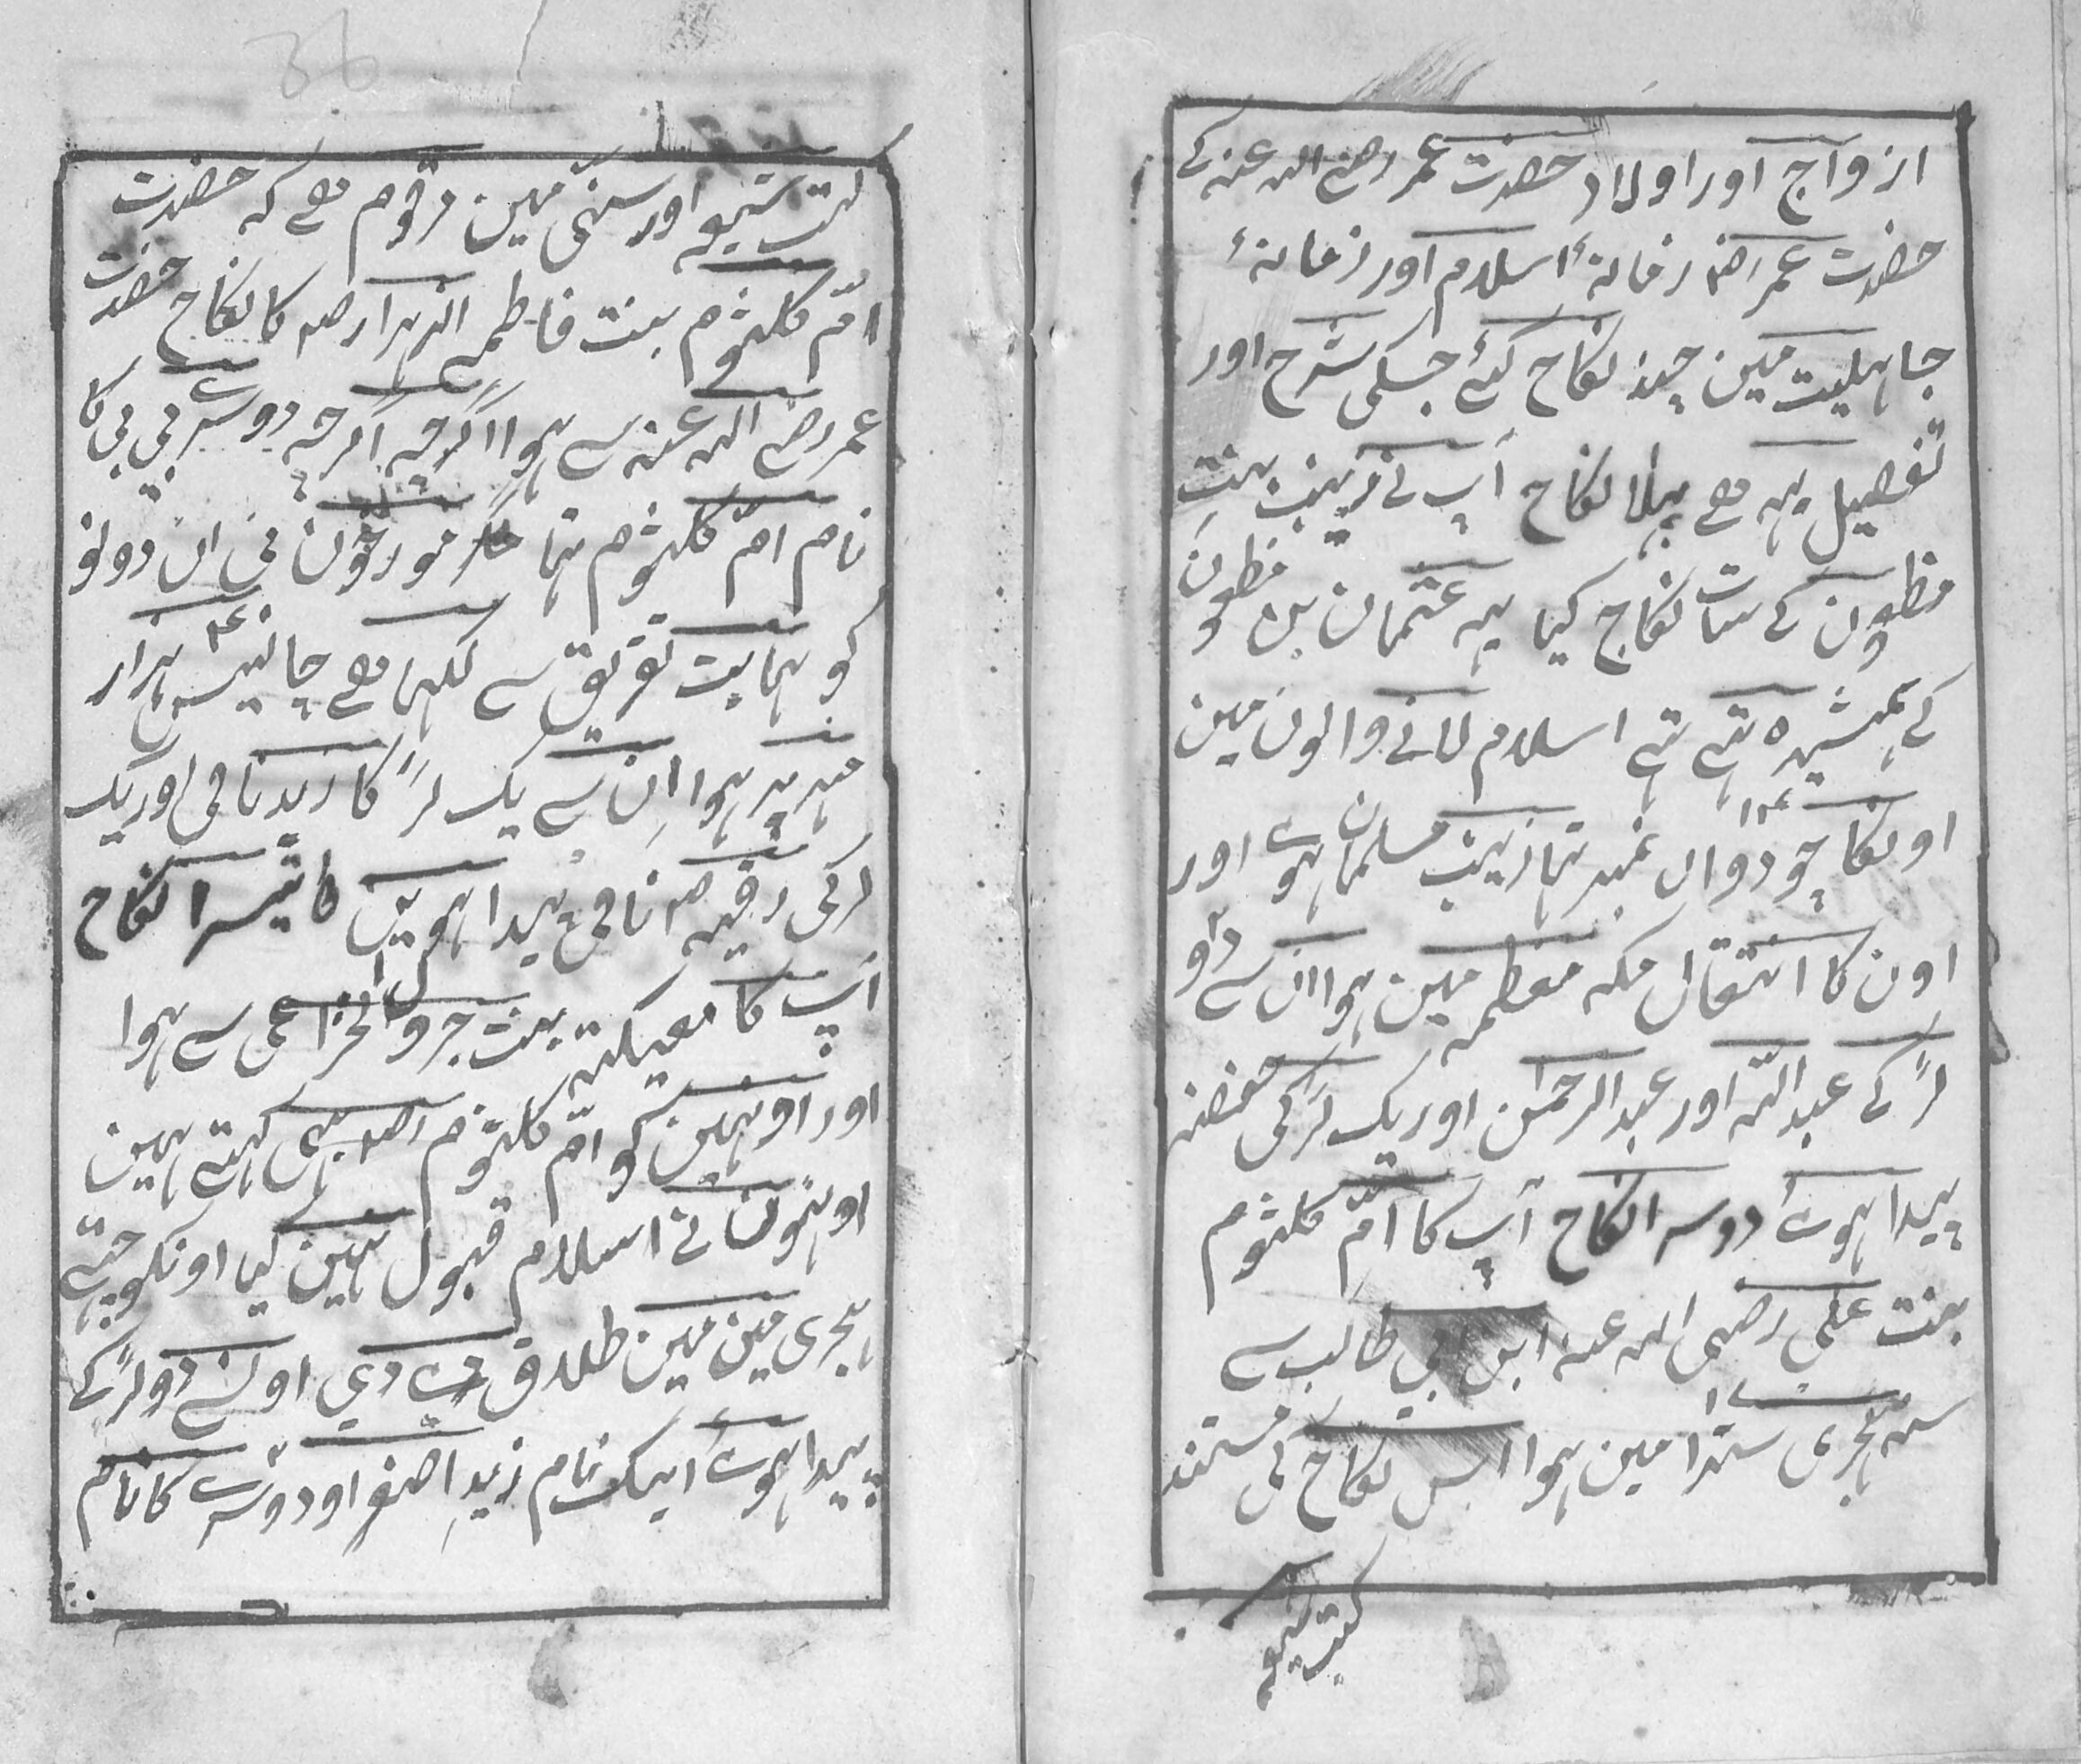 ازواج اور اولاد حضرت عمر رضے اللہ عنہ کے
حضرت عمر رضہ زمانۂ اسلام اور زمانۂ
جاہلیت مین چند نکاح کئے جسکی شرح اور
تفصیل یہہ ہے پہلا نکاح آپ نے زینب بنتِ
مظعون کے سات نکاج کیا یہہ عثمان بن مظعون
کے ہمشیرہ تہے تہے اسلام لانے والون مین
اونکا چودواں ۱۴ نمبر تہا زینب مسلمان ہوے اور
اون کا انتقال مکہ معظمہ مین ہوا ان سے دو
لڑکے عبداللّہ اور عبدالرحمٰن اور یک لڑکی حفصہ
پیدا ہوئے دوسرا نکاح آپ کا امِّ کلثوم
بنت علی رضی اللہ عنہ ابن ابی طالب سے
سنہ ہجری سترا ۱۷ مین ہوا اس نکاح کی مستند
کتب شیعہ
کتب شیعہ اور سنّی مین مرقوم ہے کہ حضرت
امّ کلثوم بنت فاطمہ الزہرا رضہ کا نکاح حضرت
عمر رضے اللہ عنہ سے ہوا اگرچہ اگرچہ دوسرے بی بی کا
نام امّ کلثوم تہا مگر مورخون نی ان دونو
کو نہایت تفریق سے لکہا ہے چالیس ۴۰ ہزار
مہر پر ہوا اِن سے یک لڑکا زید نامی اور یک
لڑکی رقیہ رضہ نامی پیدا ہویں تیسرا نکاح
آپ کا معیکتہ بنت جرول الخزاعی سے ہوا
اور اونہین کو امّ کلثوم رضہ بہی کہتے ہین
اونہون نے اسلام قبول نہین کیا اونکو چہٹے
ہجری مین مین طلاق دے دی اونسے دو لڑکے
پیدا ہوئے ایک نام زیدِ اصغر اور دوسرے کا نام